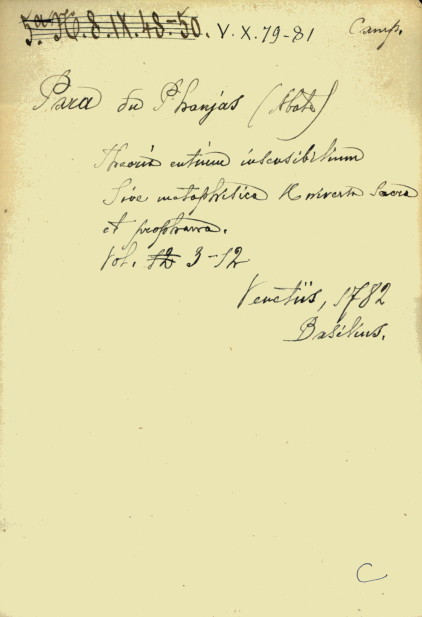 5.a H. 8. IX. 48.-50. V. X. 79-81 Camp.
Para du Phanjas (Abate)
Theoria entium insensibilium
Sive metaphisica Universa Sacra
et prophana.
Vol. 12 3-12
Venetiis, 1782
Basilius.
C